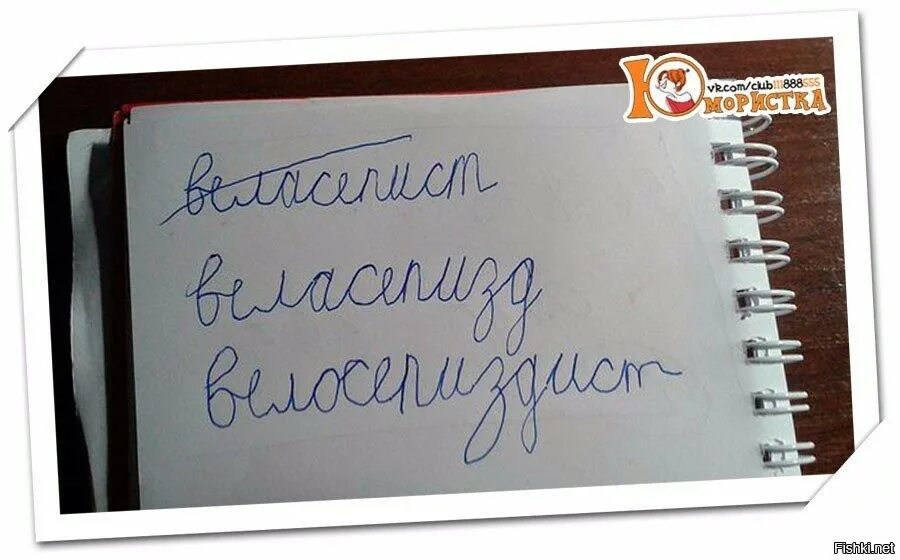 Юмористка
vk.com/club111888555
веласепист
веласепизд
велосепиздист
Fishki.net